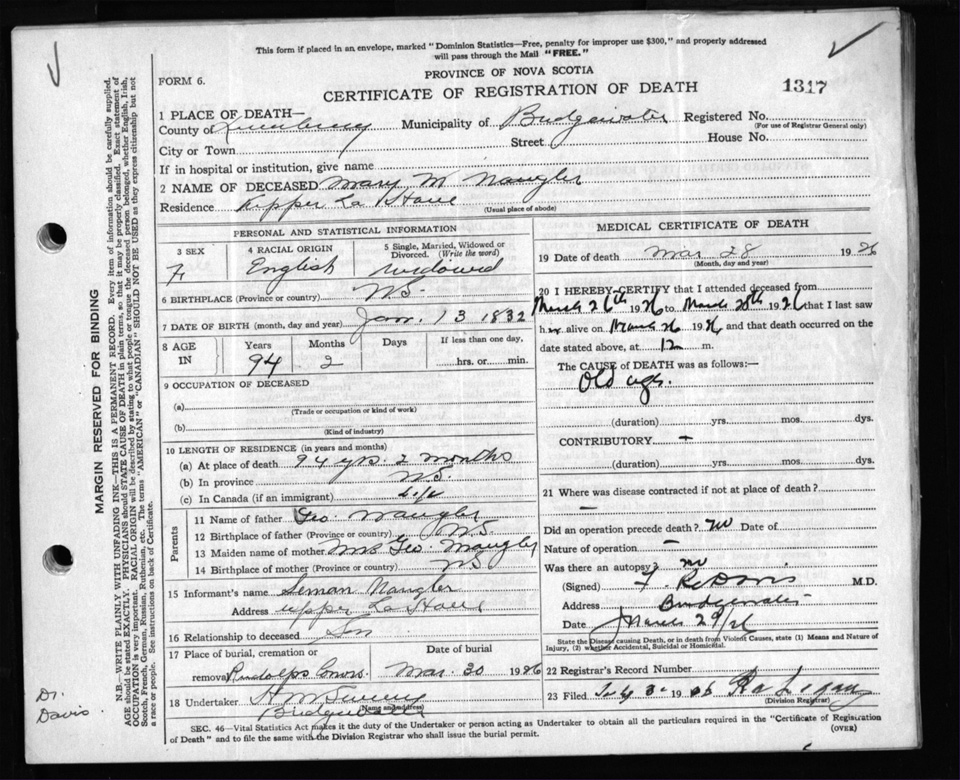 This form if placed in an envelope, marked "Dominion Statistics—Free, penalty for improper use $300," and properly addressed
will pass through the Mail "FREE."
FORM 6.
PROVINCE OF NOVA SCOTIA
CERTIFICATE OF REGISTRATION OF DEATH
1317
1 PLACE OF DEATH—
County of Lunenburg Municipality of Bridgewater Registered No.
(For use of Registrar General only)
City or Town Street House No.
If in hospital or institution, give name
2 NAME OF DECEASED Mary M Naugler
Residence Upper La Have
(Usual place of abode)
PERSONAL AND STATISTICAL INFORMATION
3 SEX
F
4 RACIAL ORIGIN
English
5 Single, Married, Widowed or Divorced. (Write the word)
widowed
6 BIRTHPLACE (Province or country) NS.
7 DATE OF BIRTH (month, day and year) Jan. 13 1832
8 AGE IN
Years Months Days If less than one day,
94 2 hrs. or min.
9 OCCUPATION OF DECEASED
(a)
(Trade or occupation or kind of work)
(b)
(Kind of industry)
10 LENGTH OF RESIDENCE (in years and months)
(a) At place of death 94 yrs. 2 months
(b) In province N.S.
(c) In Canada (if an immigrant) Life
Parents
11 Name of father Geo. Naugler
12 Birthplace of father (Province or country) N.S.
13 Maiden name of mother Mrs Geo. Naugler
14 Birthplace of mother (Province or country) NS
15 Informant's name Seman Naugler
Address Upper La Have
16 Relationship to deceased Son
17 Place of burial, cremation or removal Date of burial
Mar. 30 1926
18 Undertaker
Bridgewater
(Name and address)
MEDICAL CERTIFICATE OF DEATH
19 Date of death Mar 28 1926
(Month, day and year)
20 I HEREBY CERTIFY that I attended deceased from
March 26th 1926 to March 28th 1926 that I last saw
her alive on March 26 1926 and that death occurred on the
date stated above, at 12 m.
The CAUSE of DEATH was as follows:—
Old age.
(duration) yrs. mos. dys.
CONTRIBUTORY —
(duration) yrs. mos. dys.
21 Where was disease contracted if not at place of death?
—
Did an operation precede death? no Date of
Nature of operation —
Was there an autopsy? no
(Signed) Davis M.D.
Address Bridgewater
Date March 29/26
State the Disease causing Death, or in death from Violent Causes, state (1) Means and Nature of
Injury, (2) whether Accidental, Suicidal or Homicidal.
22 Registrar's Record Number
23 Filed 19
(Division Registrar)
SEC. 46—Vital Statistics Act makes it the duty of the Undertaker or person acting as Undertaker to obtain all the particulars required in the "Certificate of Registration
of Death" and to file the same with the Division Registrar who shall issue the burial permit.
(OVER)
MARGIN RESERVED FOR BINDING
N.B.—WRITE PLAINLY WITH UNFADING INK—THIS IS A PERMANENT RECORD. Every item of information should be carefully supplied.
AGE should be stated EXACTLY. PHYSICIANS should STATE CAUSE OF DEATH in plain terms, so that it may be properly classified. Exact statement of
OCCUPATION is very important. RACIAL ORIGIN will be described by stating to what people or tongue the deceased person belonged, whether English, Irish,
Scotch, French, German, Russian, Ruthenian, etc. The terms "AMERICAN" or "CANADIAN" SHOULD NOT BE USED as they express citizenship but not
a race or people. See instructions on back of Certificate.
Dr.
Davis